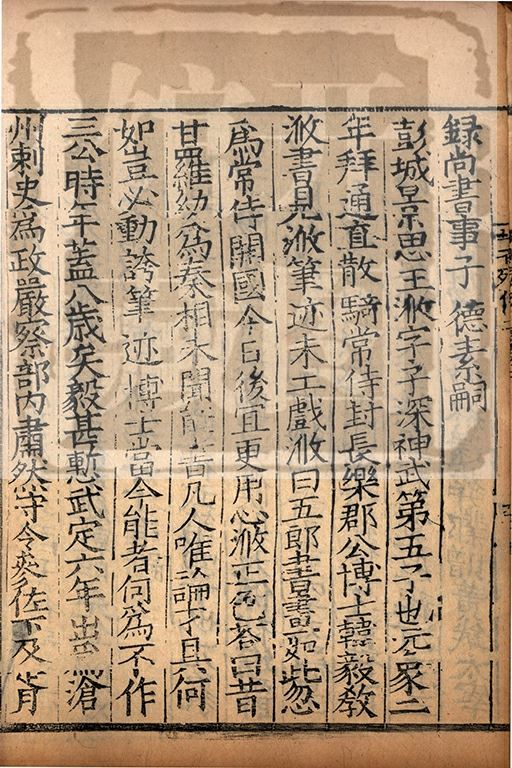 録尚書事子 德素嗣
彭城景思王浟字子深神武第五子也元象二
年拜通直散騎常侍封長樂郡公博士韓毅教
浟書見浟筆迹未工戲浟曰五郎書畫如此忽
爲常侍開國今日後宜更用心浟正色答曰昔
甘羅幼爲秦相未聞能書凡人唯論才具何
如豈必動誇筆迹博士當今能者何爲不作
三公時年蓋八歲矣毅甚慙武定六年出爲滄
州刺史爲政嚴察部内肅然守令參佐下及胥